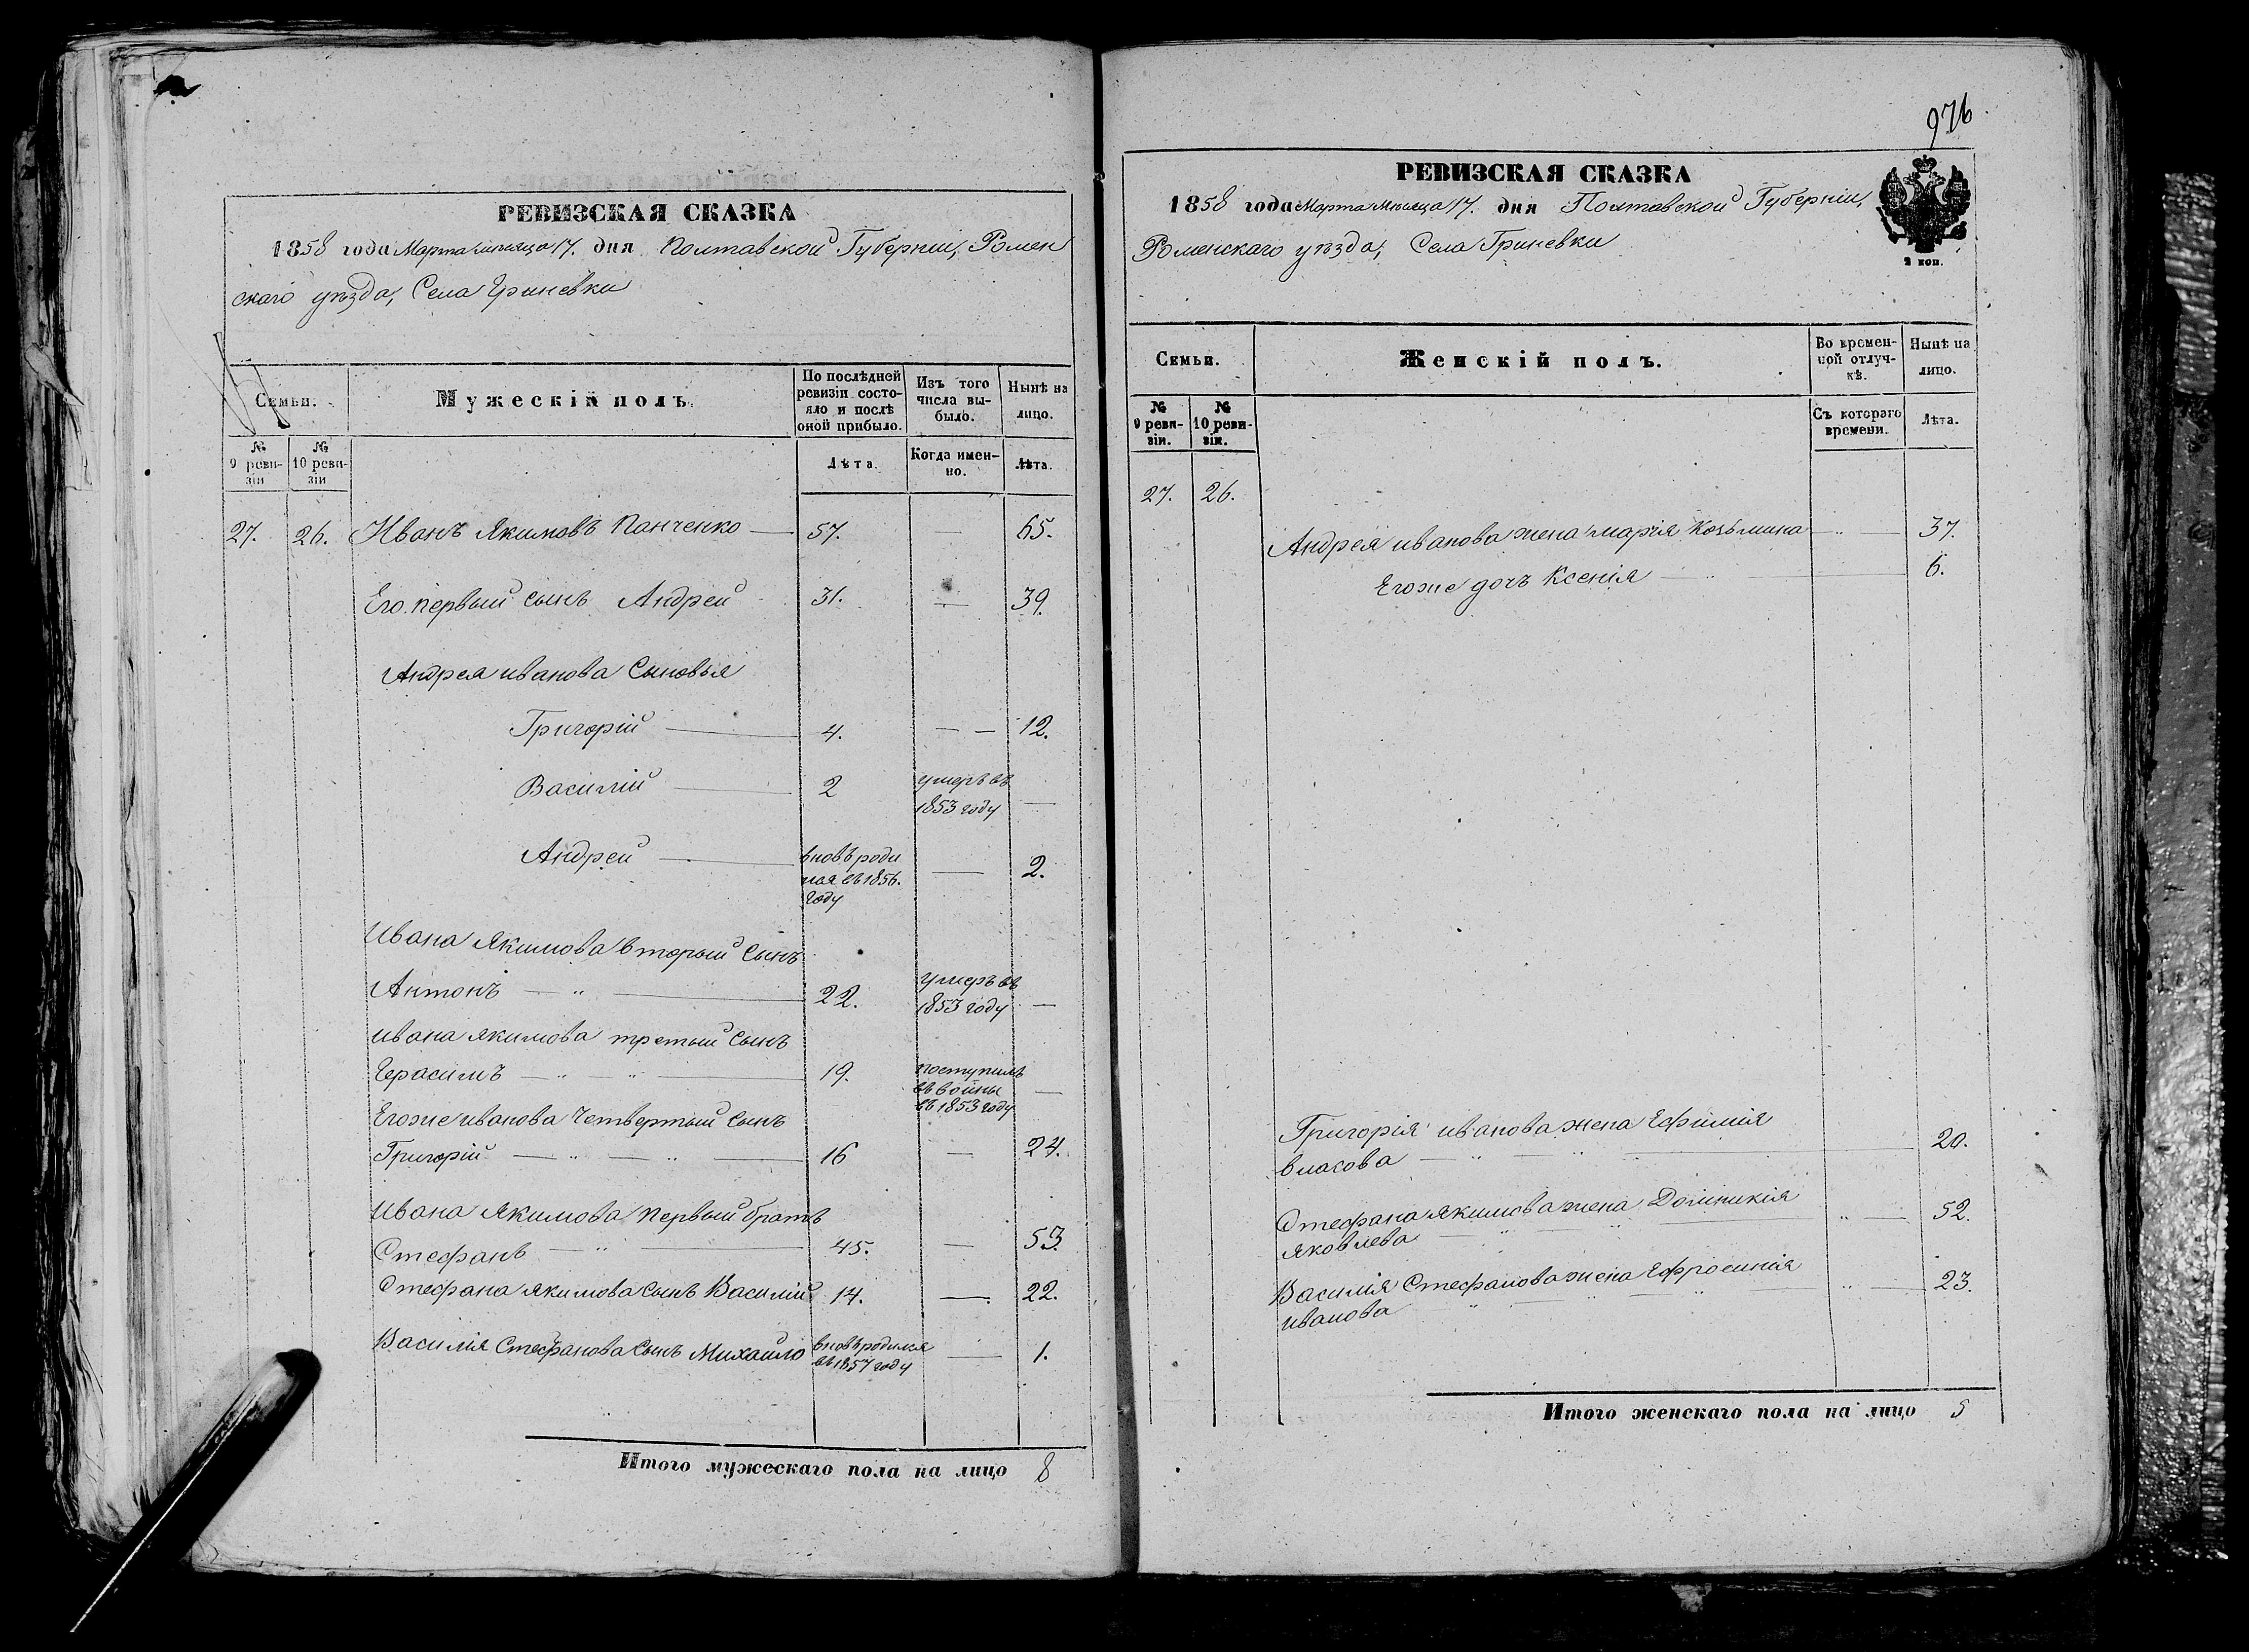 РЕВИЗСКАЯ СКАЗКА
1858 года Марта мѣсяца 17. дня Полтавской Губерніи, Ромен
скаго уѣзда, Села Гриневки
Семьи.
Мужескій полъ
По послѣдней ревизіи состо-
яло и послѣ оной прибыло.
Изъ того числа вы-
было.
Нынѣ на лицо.
№ 9 реви-
зіи
№ 10 реви-
зіи
Лѣта.
Когда имен-
но.
Лѣта.
27. 26. Иванъ Якимовъ Панченко — 57. — 65.
Его первый сынъ Андрей 31. — 39.
Андрея иванова Сыновья
Григорій — 4. — — 12.
Василій — 2 умеръ въ 1853 году —
Андрей — вновь роди
лся въ 1856.
году — 2.
Ивана Якимова вторый Сынъ
Антонъ — „ — 22. умеръ въ 1853 году —
ивана якимова третый Сынъ
Герасимъ — „ — „ — 19. поступилъ
въ войны
въ 1853 году —
Егоже иванова Четвертый Сынъ
Григорій — „ — „ — 16 — 24.
Ивана Якимова Первый братъ
Стефанъ — „ — 45. — 53.
Стефана якимова Сынъ Василій 14. — 22.
Василія Стефанова Сынъ Михайло вновь родился
въ 1857 году — 1.
Итого мужескаго пола на лицо 8
976
РЕВИЗСКАЯ СКАЗКА
1858 года Марта Мѣсяца 17. дня Полтавской Губерніи,
Роменскаго уѣзда, Села Гриневки
2 коп.
Семьи.
Женскій полъ.
Во времен-
ной отлуч-
кѣ.
Нынѣ на лицо.
№ 9 реви-
зіи.
№ 10 реви-
зіи.
Съ котораго
времени.
Лѣта.
27. 26.
Андрея иванова жена марія Козьмина — „ — 37.
Егоже дочъ Ксенія — „ — 6.
Григорія иванова жена Ефимія
власова — „ — „ — 20.
Стефана якимова жена Домникія
яковлева — „ — „ — 52.
Василія Стефанова жена Ефросинія
иванова — „ — „ — 23.
Итого женскаго пола на лицо 5